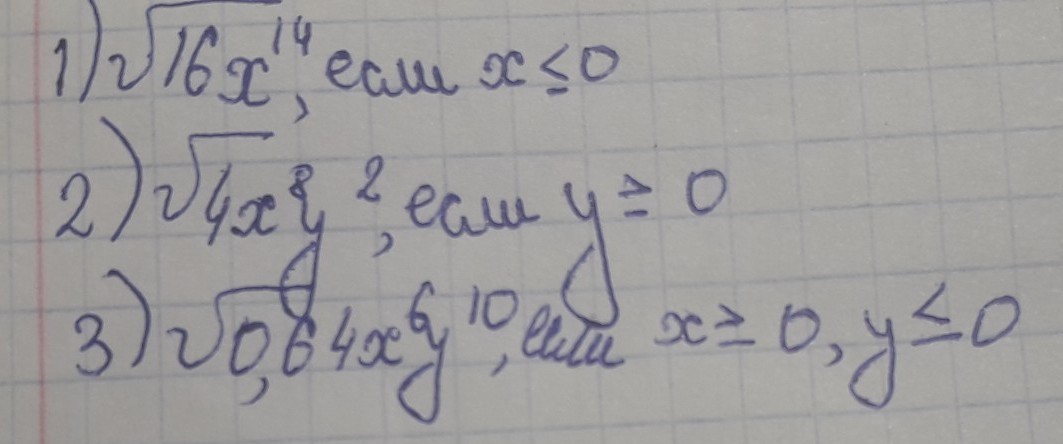 1) √16x¹⁴, если x ≤ 0
2) √4x⁸y², если y ≥ 0
3) √0,64x⁶y¹⁰, если x ≥ 0, y ≤ 0